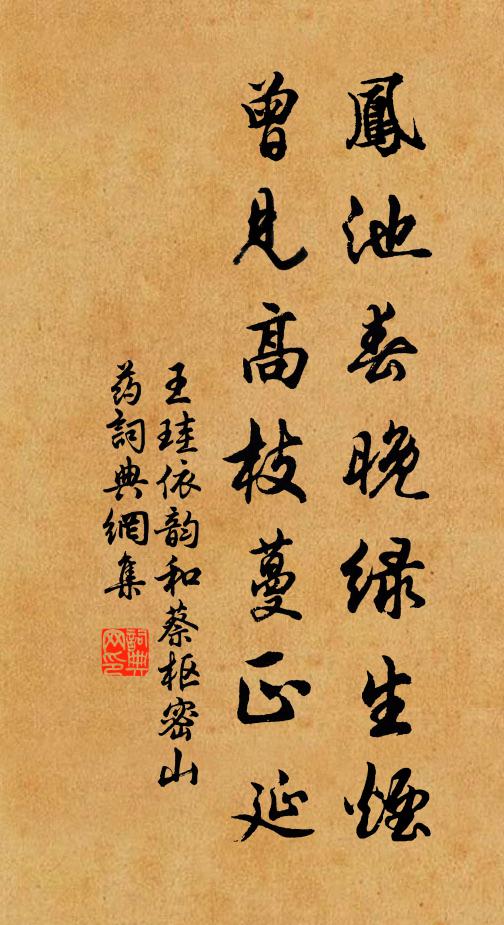 鳳池春晚绿生煙
曾見高枝蔓正延
王珪依韵和蔡枢密山
药詞典網集
詞典网印